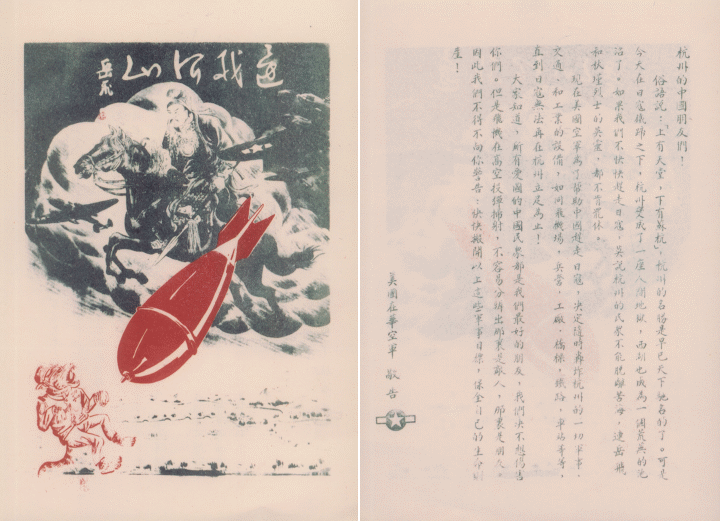 還我河山
岳飛
杭州的中國朋友們!
俗語說:「上有天堂,下有蘇杭」,杭州的名稱是早已天下馳名的了。可是
今天在日寇鐵蹄之下,杭州變成了一座人間地獄,西湖也成為一個荒蕪的死
沼了。如果我們不快快趕走日寇,莫說杭州的民眾不能脫離苦海,連岳飛
和秋瑾烈士的英靈,都不肯罷休。
現在美國空軍為了幫助中國趕走日寇,決定隨時轟炸杭州的一切軍事,
交通,和工業的設備,如同飛機場,兵營,工廠,橋樑,鐵路,車站等等,
直到日寇無法再在杭州立足為止!
大家知道,所有愛國的中國民眾都是我們最好的朋友,我們決不想傷害
你們。但是飛機在高空投彈掃射,不容易分辨出那裏是敵人,那裏是朋友。
因此我們不得不向你警告:快快搬開以上這些軍事目標,保全自己的生命財
產!
美國在華空軍 敬告